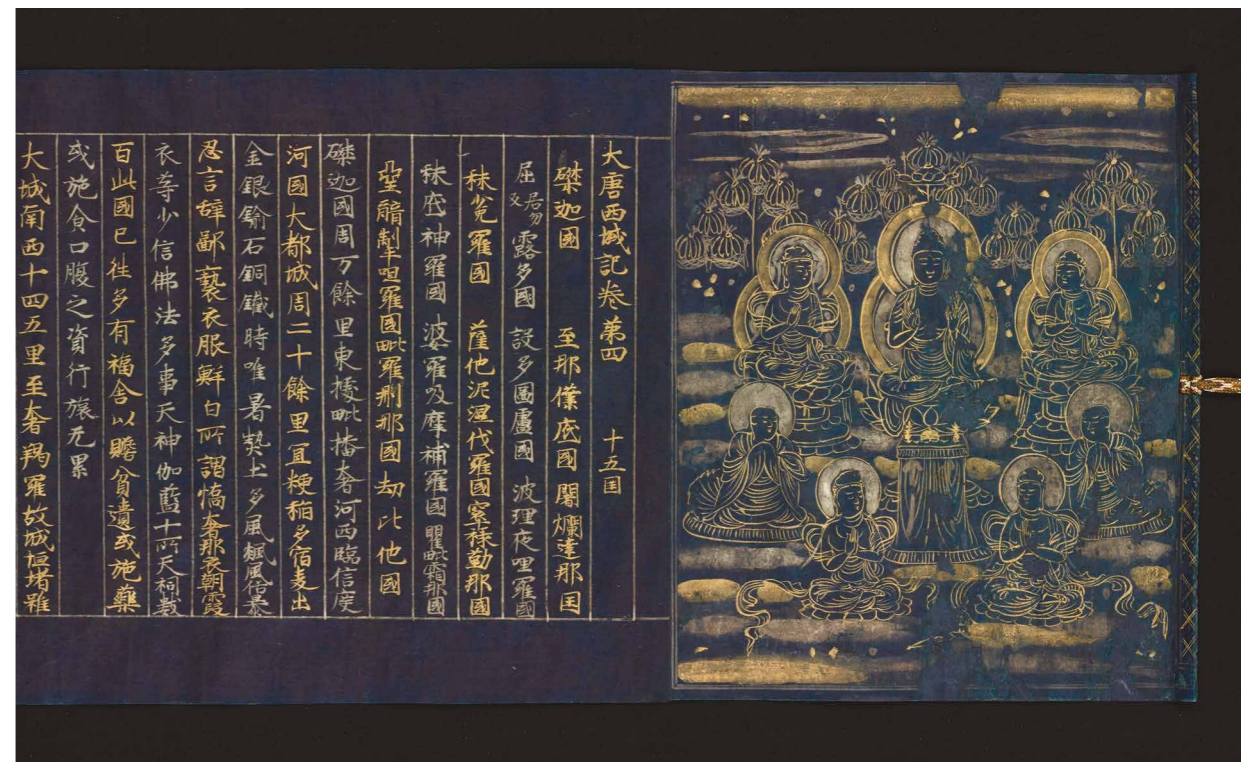 大唐西域記卷第四 十五国
磔迦國 至那僕底國 闍爛達那国
屈居勿又露多國 設多圖盧國 波理夜呾羅國
秣菟羅國 薩他泥濕伐羅國 窣祿勤那國
秣底神羅國 婆羅吸摩補羅國 瞿毗霜那國
堊醯掣呾羅國 毗羅刪那國 劫比他國
磔迦國周万餘里東據毗播奢河西臨信度
河國大都城周二十餘里宜粳稻多宿麦出
金銀鍮石銅鐵時唯暑熱土多風飈風俗暴
惡言辞鄙褻衣服鮮白所謂憍奢那衣朝霞
衣等少信佛法多事天神伽藍十所天祠數
百此國已往多有福舍以贍貧遺或施藥
或施食口腹之資行旅无累
大城南西十四五里至奢羯羅故城垣堵雖